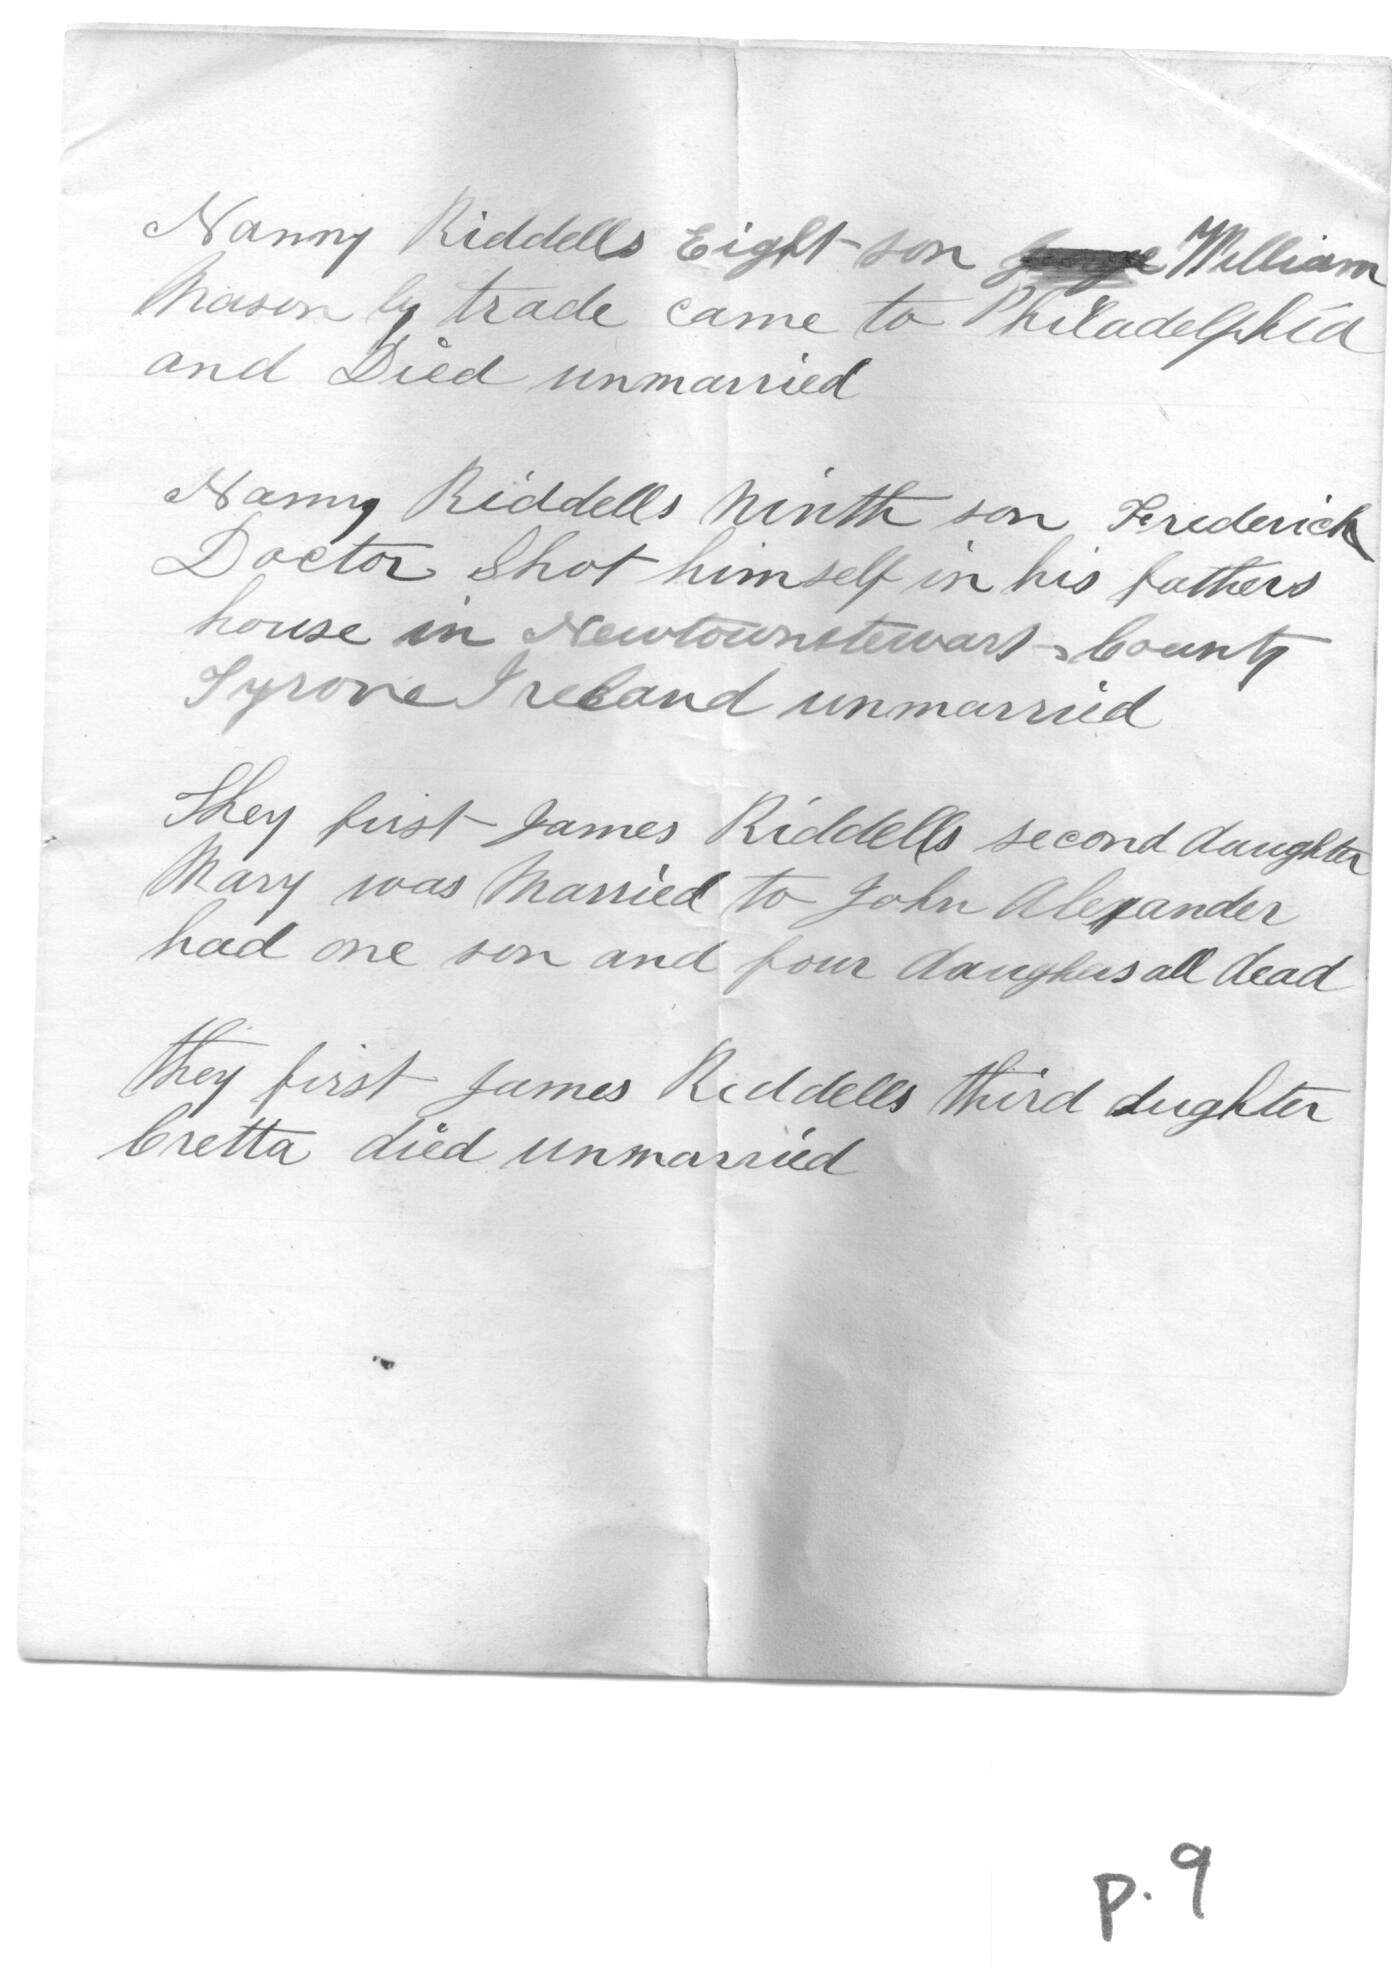 Nanny Riddells Eight son George William
Mason by trade came to Philadelphia
and Died unmarried
Nanny Riddells Ninth son Frederick
Doctor Shot himself in his fathers
house in Newtownstewart County
Tyrone Ireland unmarried
They first James Riddells second daughter
Mary was Married to John Alexander
had one son and four daughers all dead
they first James Riddells third dughter
Cretta died unmarried
p. 9